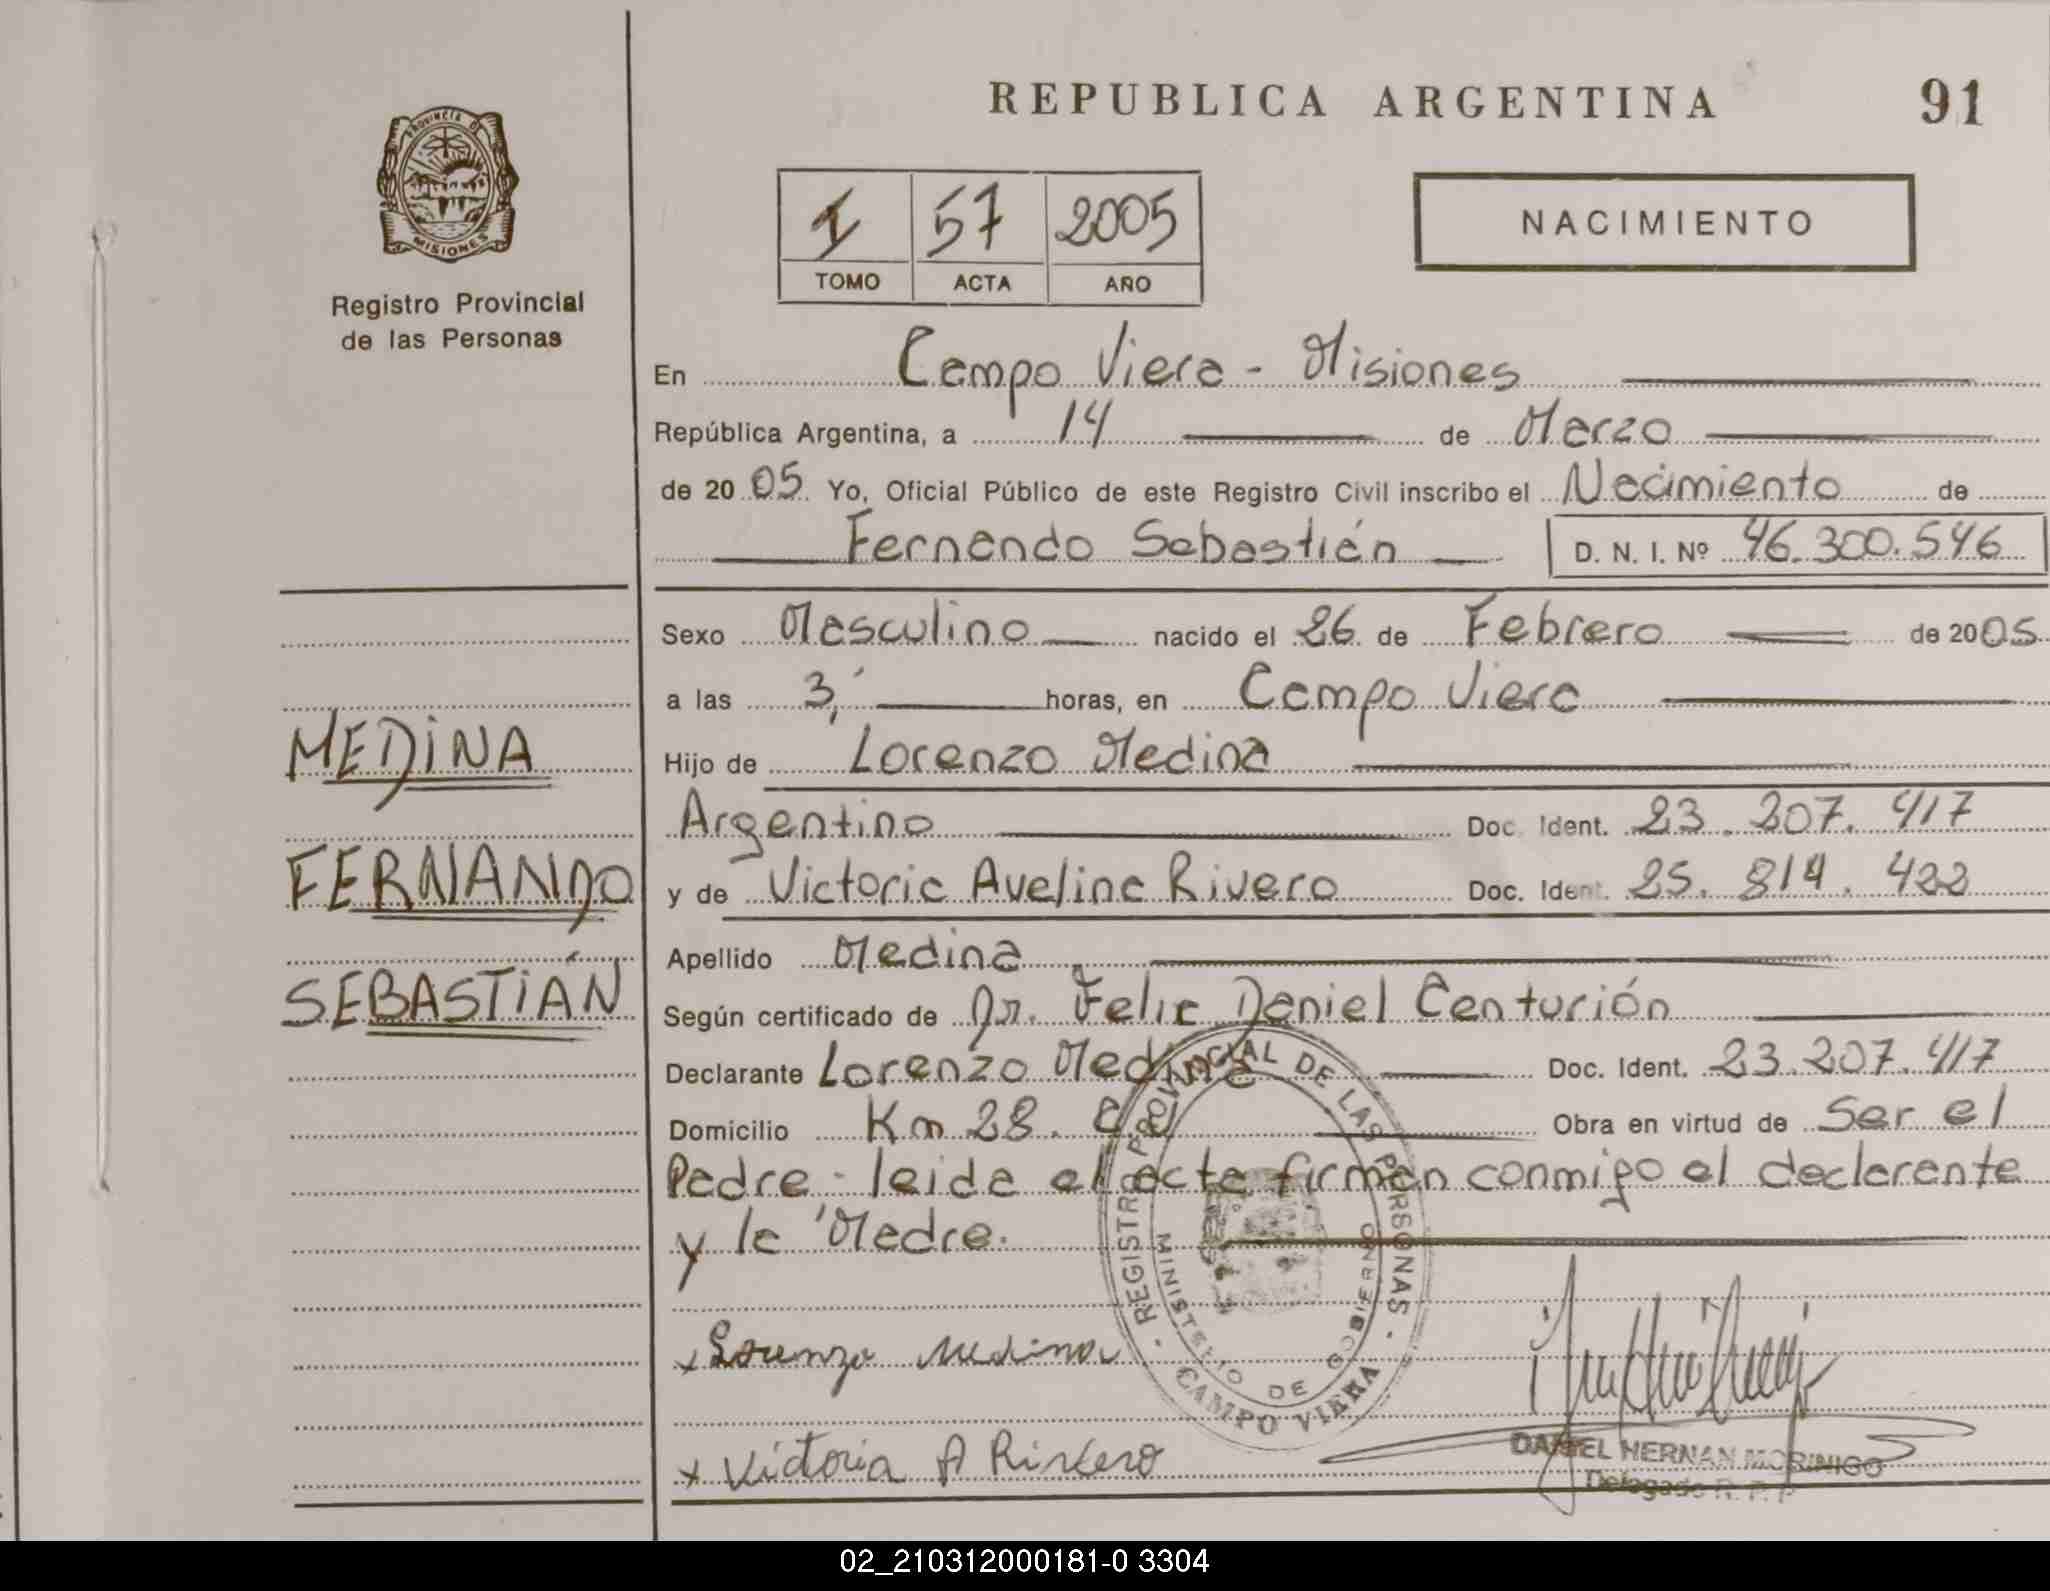 PROVINCIA DE
MISIONES
Registro Provincial
de las Personas
REPUBLICA ARGENTINA 91
I 57 2005
TOMO ACTA AÑO
NACIMIENTO
En Campo Viera - Misiones
República Argentina, a 14 de Marzo
de 2005 Yo, Oficial Público de este Registro Civil inscribo el Nacimiento de
Fernando Sebastián D. N. I. Nº 46.300.546
Sexo Masculino nacido el 26 de Febrero de 2005
a las 3, horas, en Campo Viera
MEDINA
Hijo de Lorenzo Medina
Argentino Doc. Ident. 23.207.417
FERNANDO
y de Victoria Avelina Rivero Doc. Ident. 25.814.422
Apellido Medina
SEBASTIÁN
Según certificado de Dr. Felix Daniel Centurión
Declarante Lorenzo Medina Doc. Ident. 23.207.417
Domicilio Km 28. Obra en virtud de Ser el
Padre - leida el acta firman conmigo el declarante
y la Madre.
REGISTRO PROVINCIAL DE LAS PERSONAS
MINISTERIO DE GOBIERNO
CAMPO VIERA
x Lorenzo Medina
x Victoria A Rivero
DANIEL HERNAN MORINIGO
Delegado R. P. P
02_210312000181-0 3304